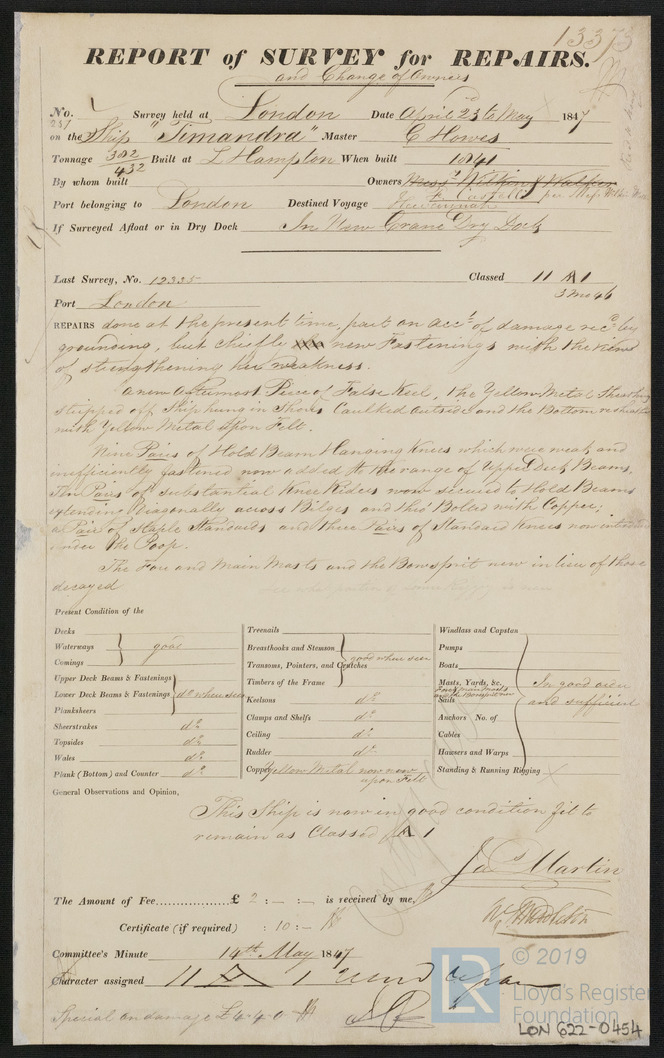 13373
REPORT of SURVEY for REPAIRS.
and Change of Owners
No. 237 Survey held at London Date April 23 to May 1847
on the Ship "Timandra" Master C Howes
Tonnage 382 / 432 Built at L Hampton When built 1841
By whom built Owners Messrs
Port belonging to London Destined Voyage
If Surveyed Afloat or in Dry Dock In New Crane Dry Dock
Last Survey, No. 12335 Classed 11 A 1
3 Mo 46
Port London
REPAIRS done at the present time, part on acct. of damage recd. by
grounding, but chiefly new Fastenings with the view
of strengthening her weakness.
a new aftermost Piece of False Keel, the Yellow Metal Sheathing
stripped off Ship hung in Shores Caulked outside and the Bottom
with Yellow Metal upon Felt.
Nine Pairs of Hold Beam Hanging Knees which were weak and
inefficiently fastened now added to the range of Upper Deck Beams,
Ten Pairs of substantial Knee Riders now secured to Hold Beams
extending Diagonally across Bilges and thro' Bolted with Copper;
a Pair of Staple Standards and three Pairs of Standard Knees now
under the Poop.
The Fore and Main Masts and the Bowsprit new in lieu of those
decayed
Present Condition of the
Decks
Waterways good
Comings
Upper Deck Beams & Fastenings
Lower Deck Beams & Fastenings do. where seen
Planksheers
Sheerstrakes do.
Topsides do.
Wales do.
Plank (Bottom) and Counter do.
Treenails
Breasthooks and Stemson
Transoms, Pointers, and Crutches good where seen
Timbers of the Frame
Keelsons do.
Clamps and Shelfs do.
Ceiling do.
Rudder do.
Copper Yellow Metal now new
upon Felt
Windlass and Capstan
Pumps
Boats
Masts, Yards, &c. In good order
Fore & main masts
and the Bowsprit new
Sails and sufficient
Anchors No. of
Cables
Hawsers and Warps
Standing & Running Rigging
General Observations and Opinion,
This Ship is now in good condition fit to
remain as Classed A 1
Jas Martin
The Amount of Fee £ 2 : – : – is received by me,
W. Middleton
Certificate (if required) : 10 : –
Committee's Minute 14th May 1847
Character assigned 11 A 1
Special on damage £4-4-0
© 2019
LR
Lloyd's Register
Foundation
LON 622-0454